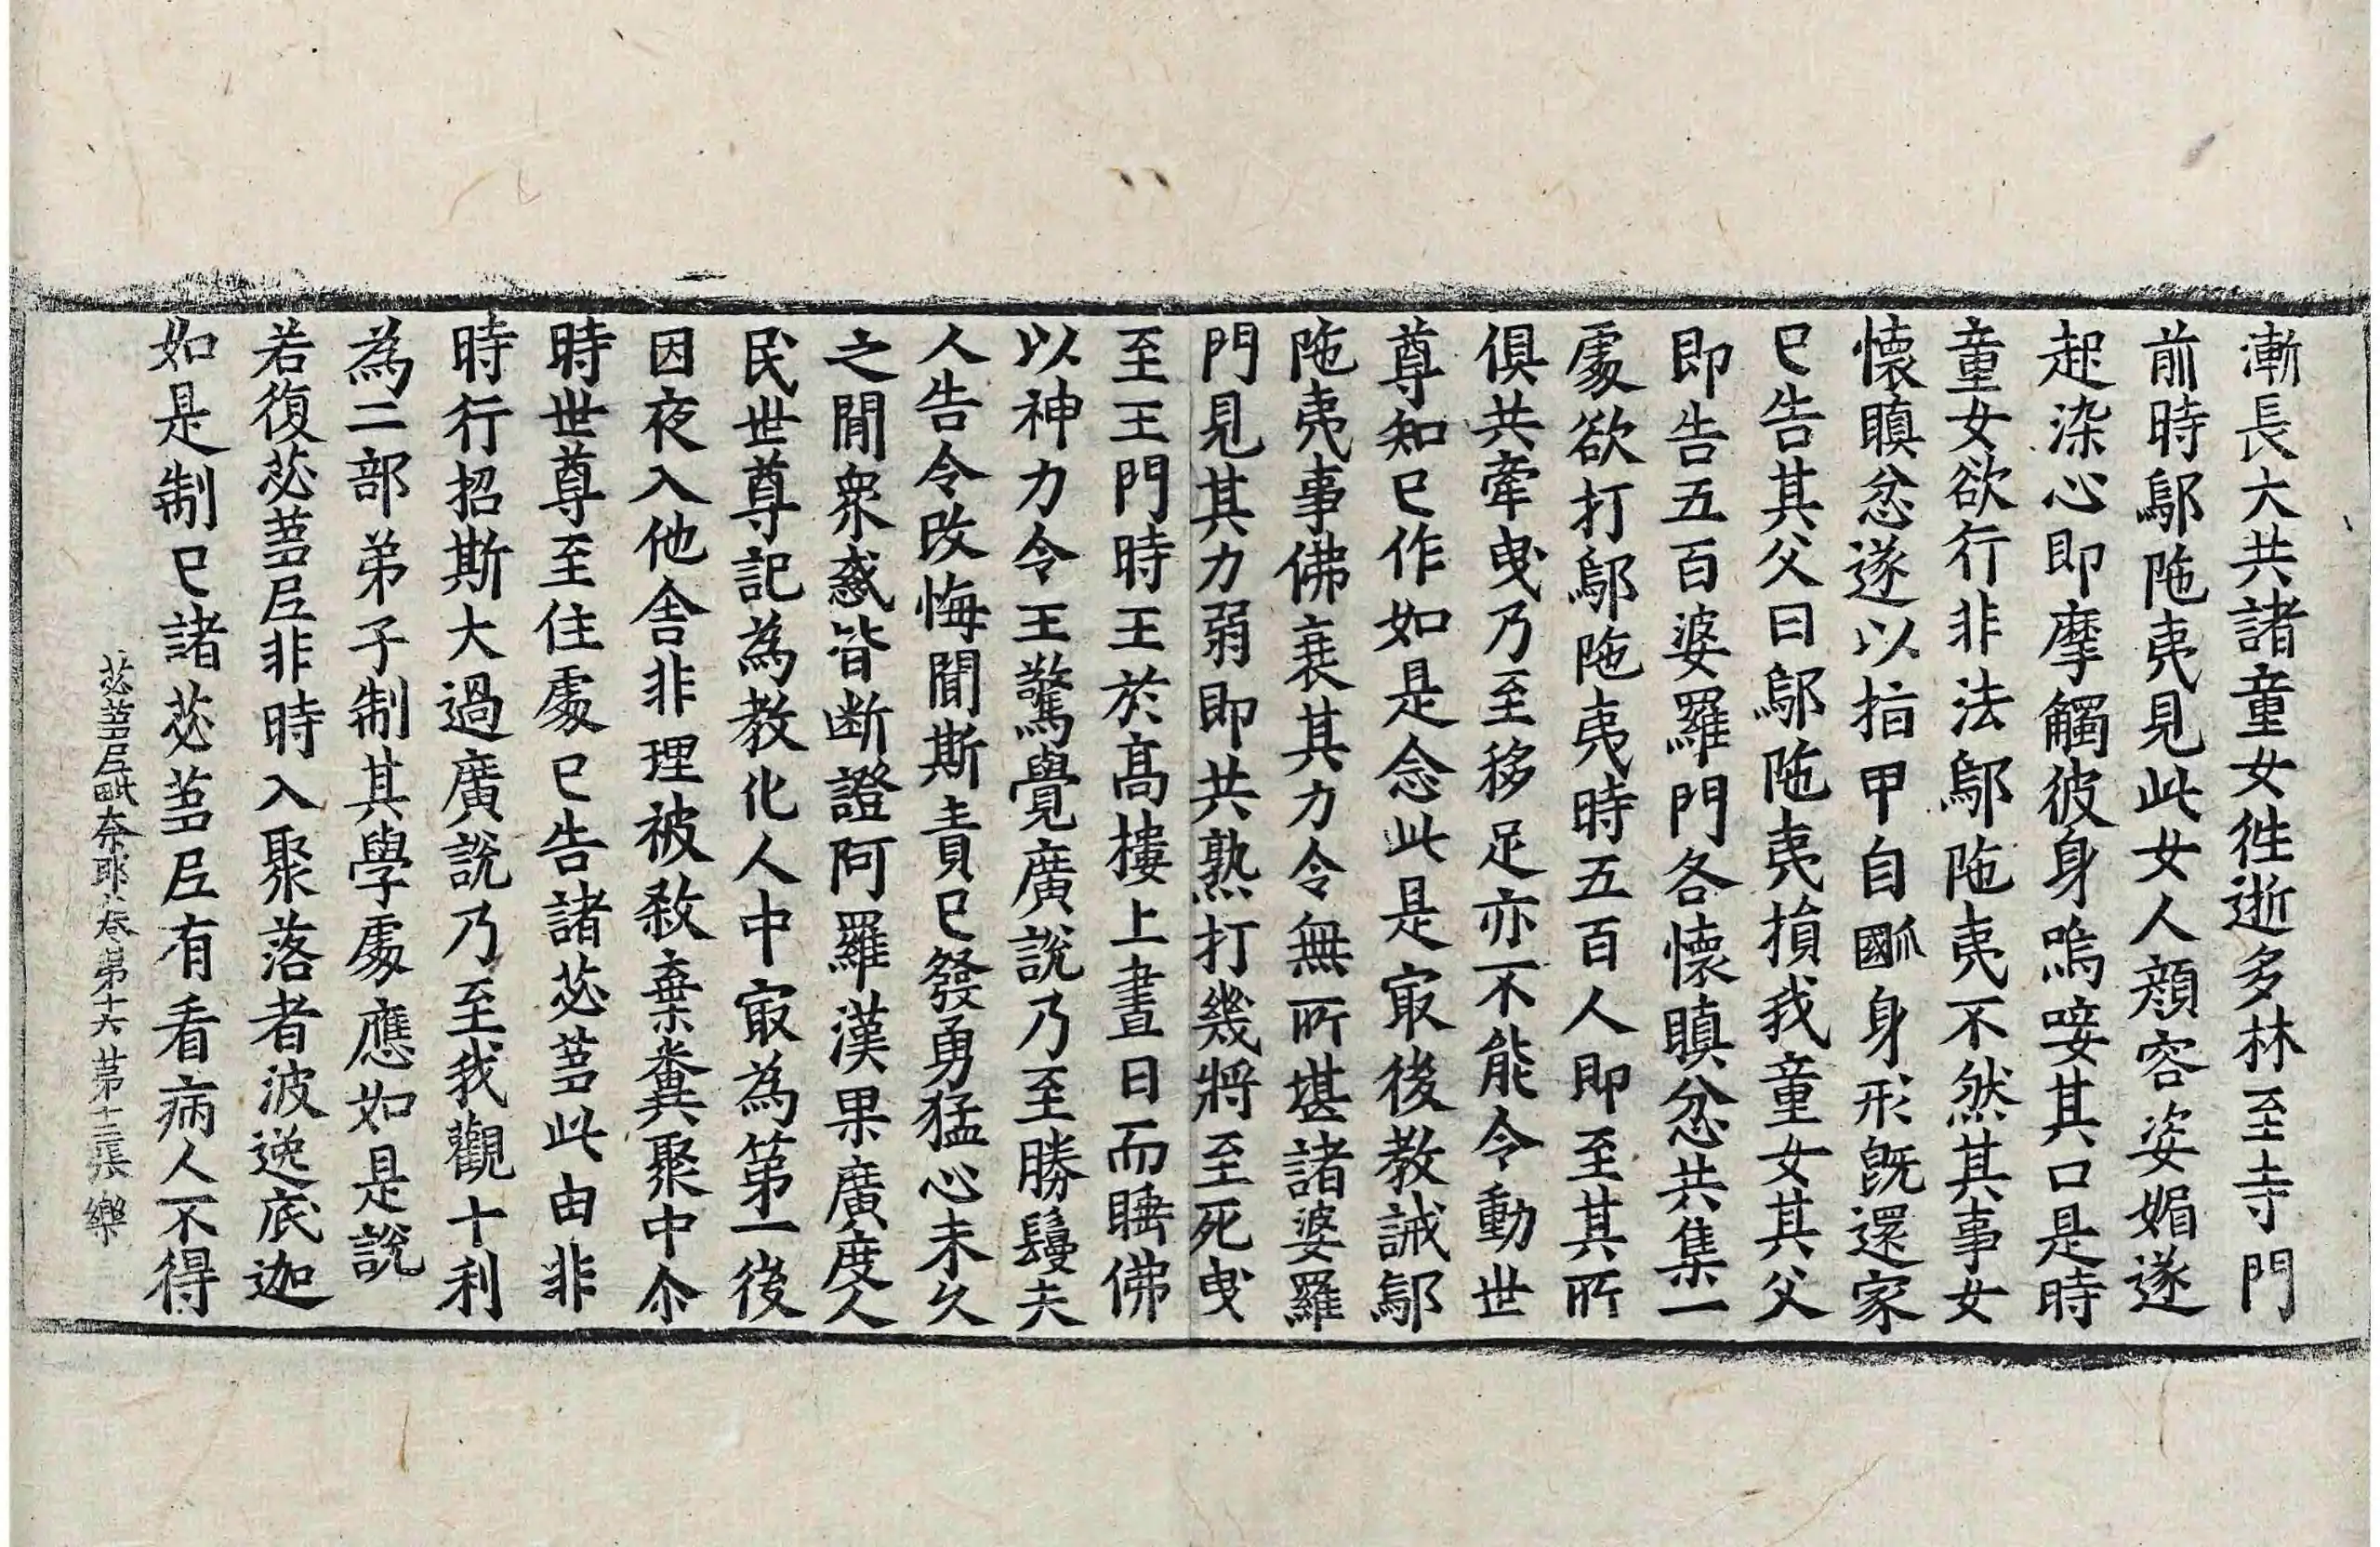 漸長大共諸童女徃逝多林至寺門
前時鄔陁夷見此女人顔容姿媚遂
起染心即摩觸彼身嗚㗱其口是時
童女欲行非法鄔陁夷不然其事女
懐瞋忿遂以指甲自𤬩身形旣還家
已告其父曰鄔陁夷損我童女其父
即告五百婆羅門各懐瞋忿共集一
處欲打鄔陁夷時五百人即至其所
俱共牽曳乃至移足亦不能令動世
尊知已作如是念此是㝡後教誡鄔
陁夷事佛衰其力令無所堪諸婆羅
門見其力弱即共熟打幾將至死曳
至王門時王於髙樓上晝日而睡佛
以神力令王驚覺廣說乃至勝鬘夫
人告令改悔聞斯責已發勇猛心未久
之間衆惑皆断證阿羅漢果廣度人
民世尊記為教化人中㝡為第一後
因夜入他舍非理被殺棄糞聚中尒
時世尊至住處已告諸苾蒭此由非
時行招斯大過廣說乃至我觀十利
為二部弟子制其學處應如是說
若復苾蒭尼非時入聚落者波逸底迦
如是制已諸苾蒭尼有看病人不得
苾蒭尼毗奈耶卷第十六 第十三張 樂